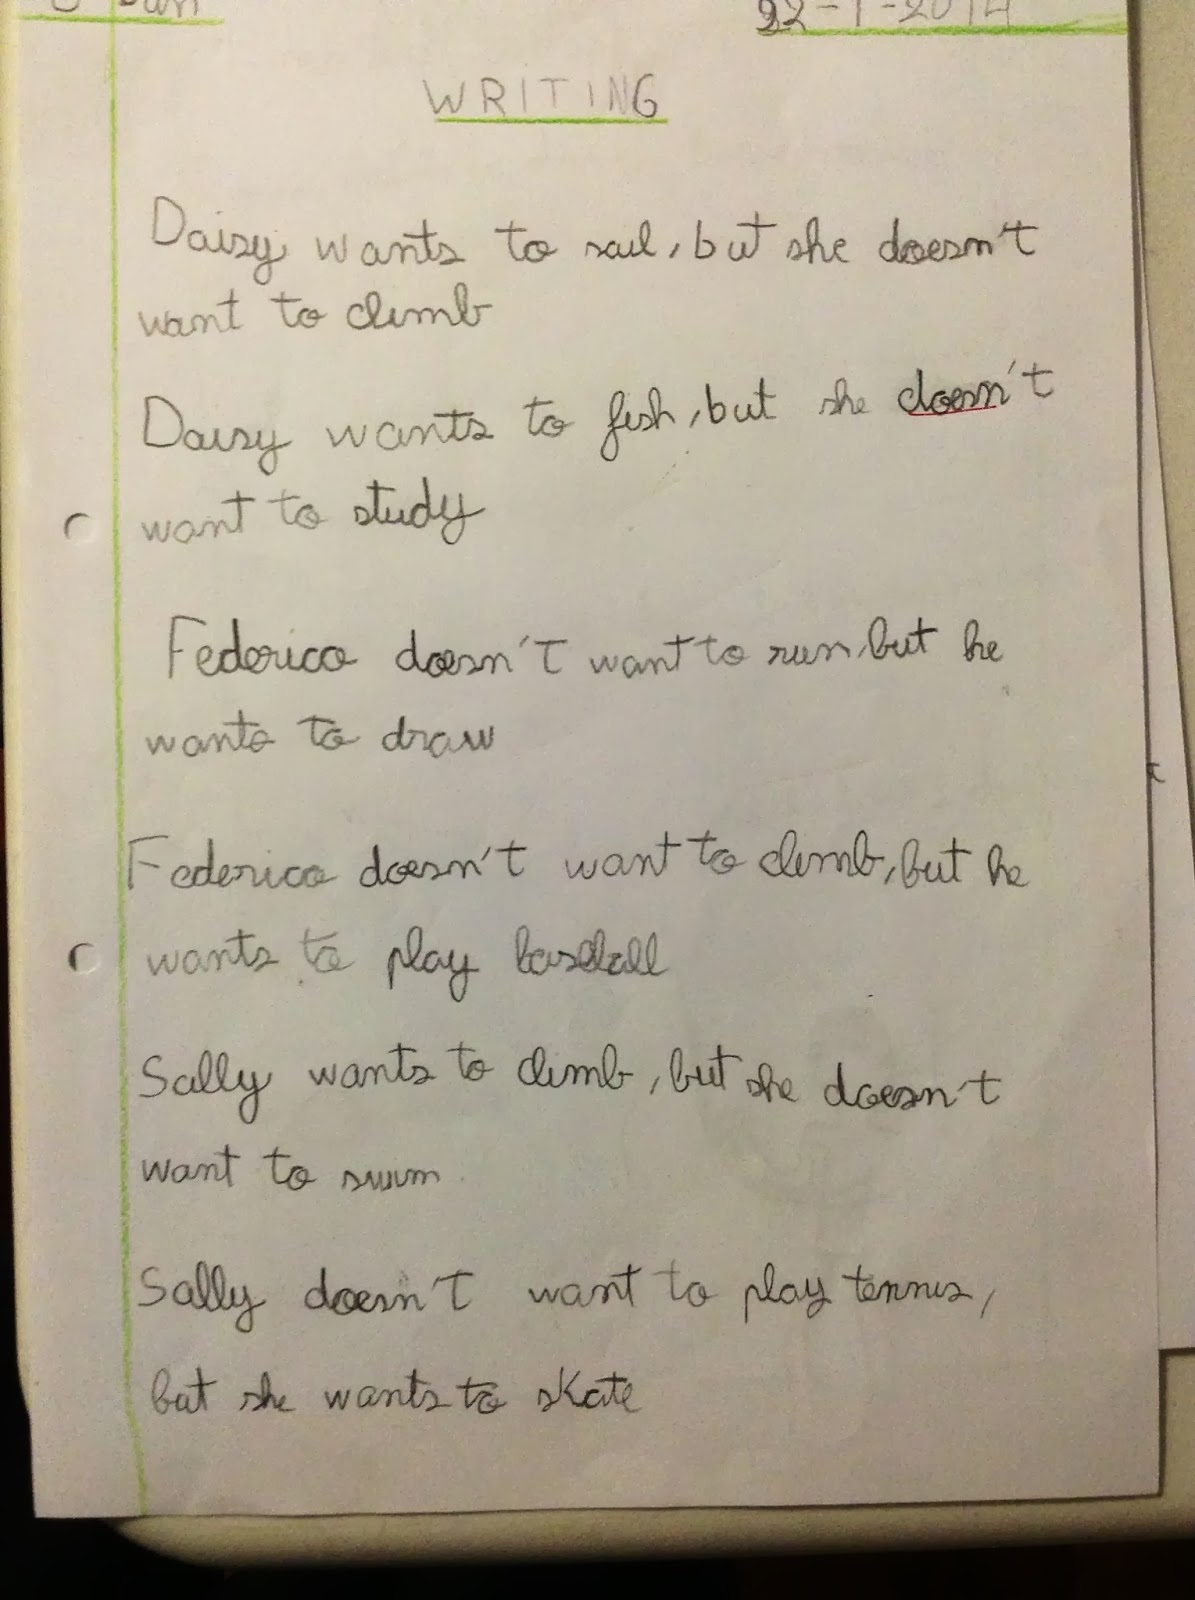 22-1-2014
WRITING
Daisy wants to sail, but she doesn't
want to climb
Daisy wants to fish, but she doesn't
want to study
Federico doesn't want to run, but he
wants to draw
Federico doesn't want to climb, but he
wants to play baseball
Sally wants to climb, but she doesn't
want to swim
Sally doesn't want to play tennis,
but she wants to skate